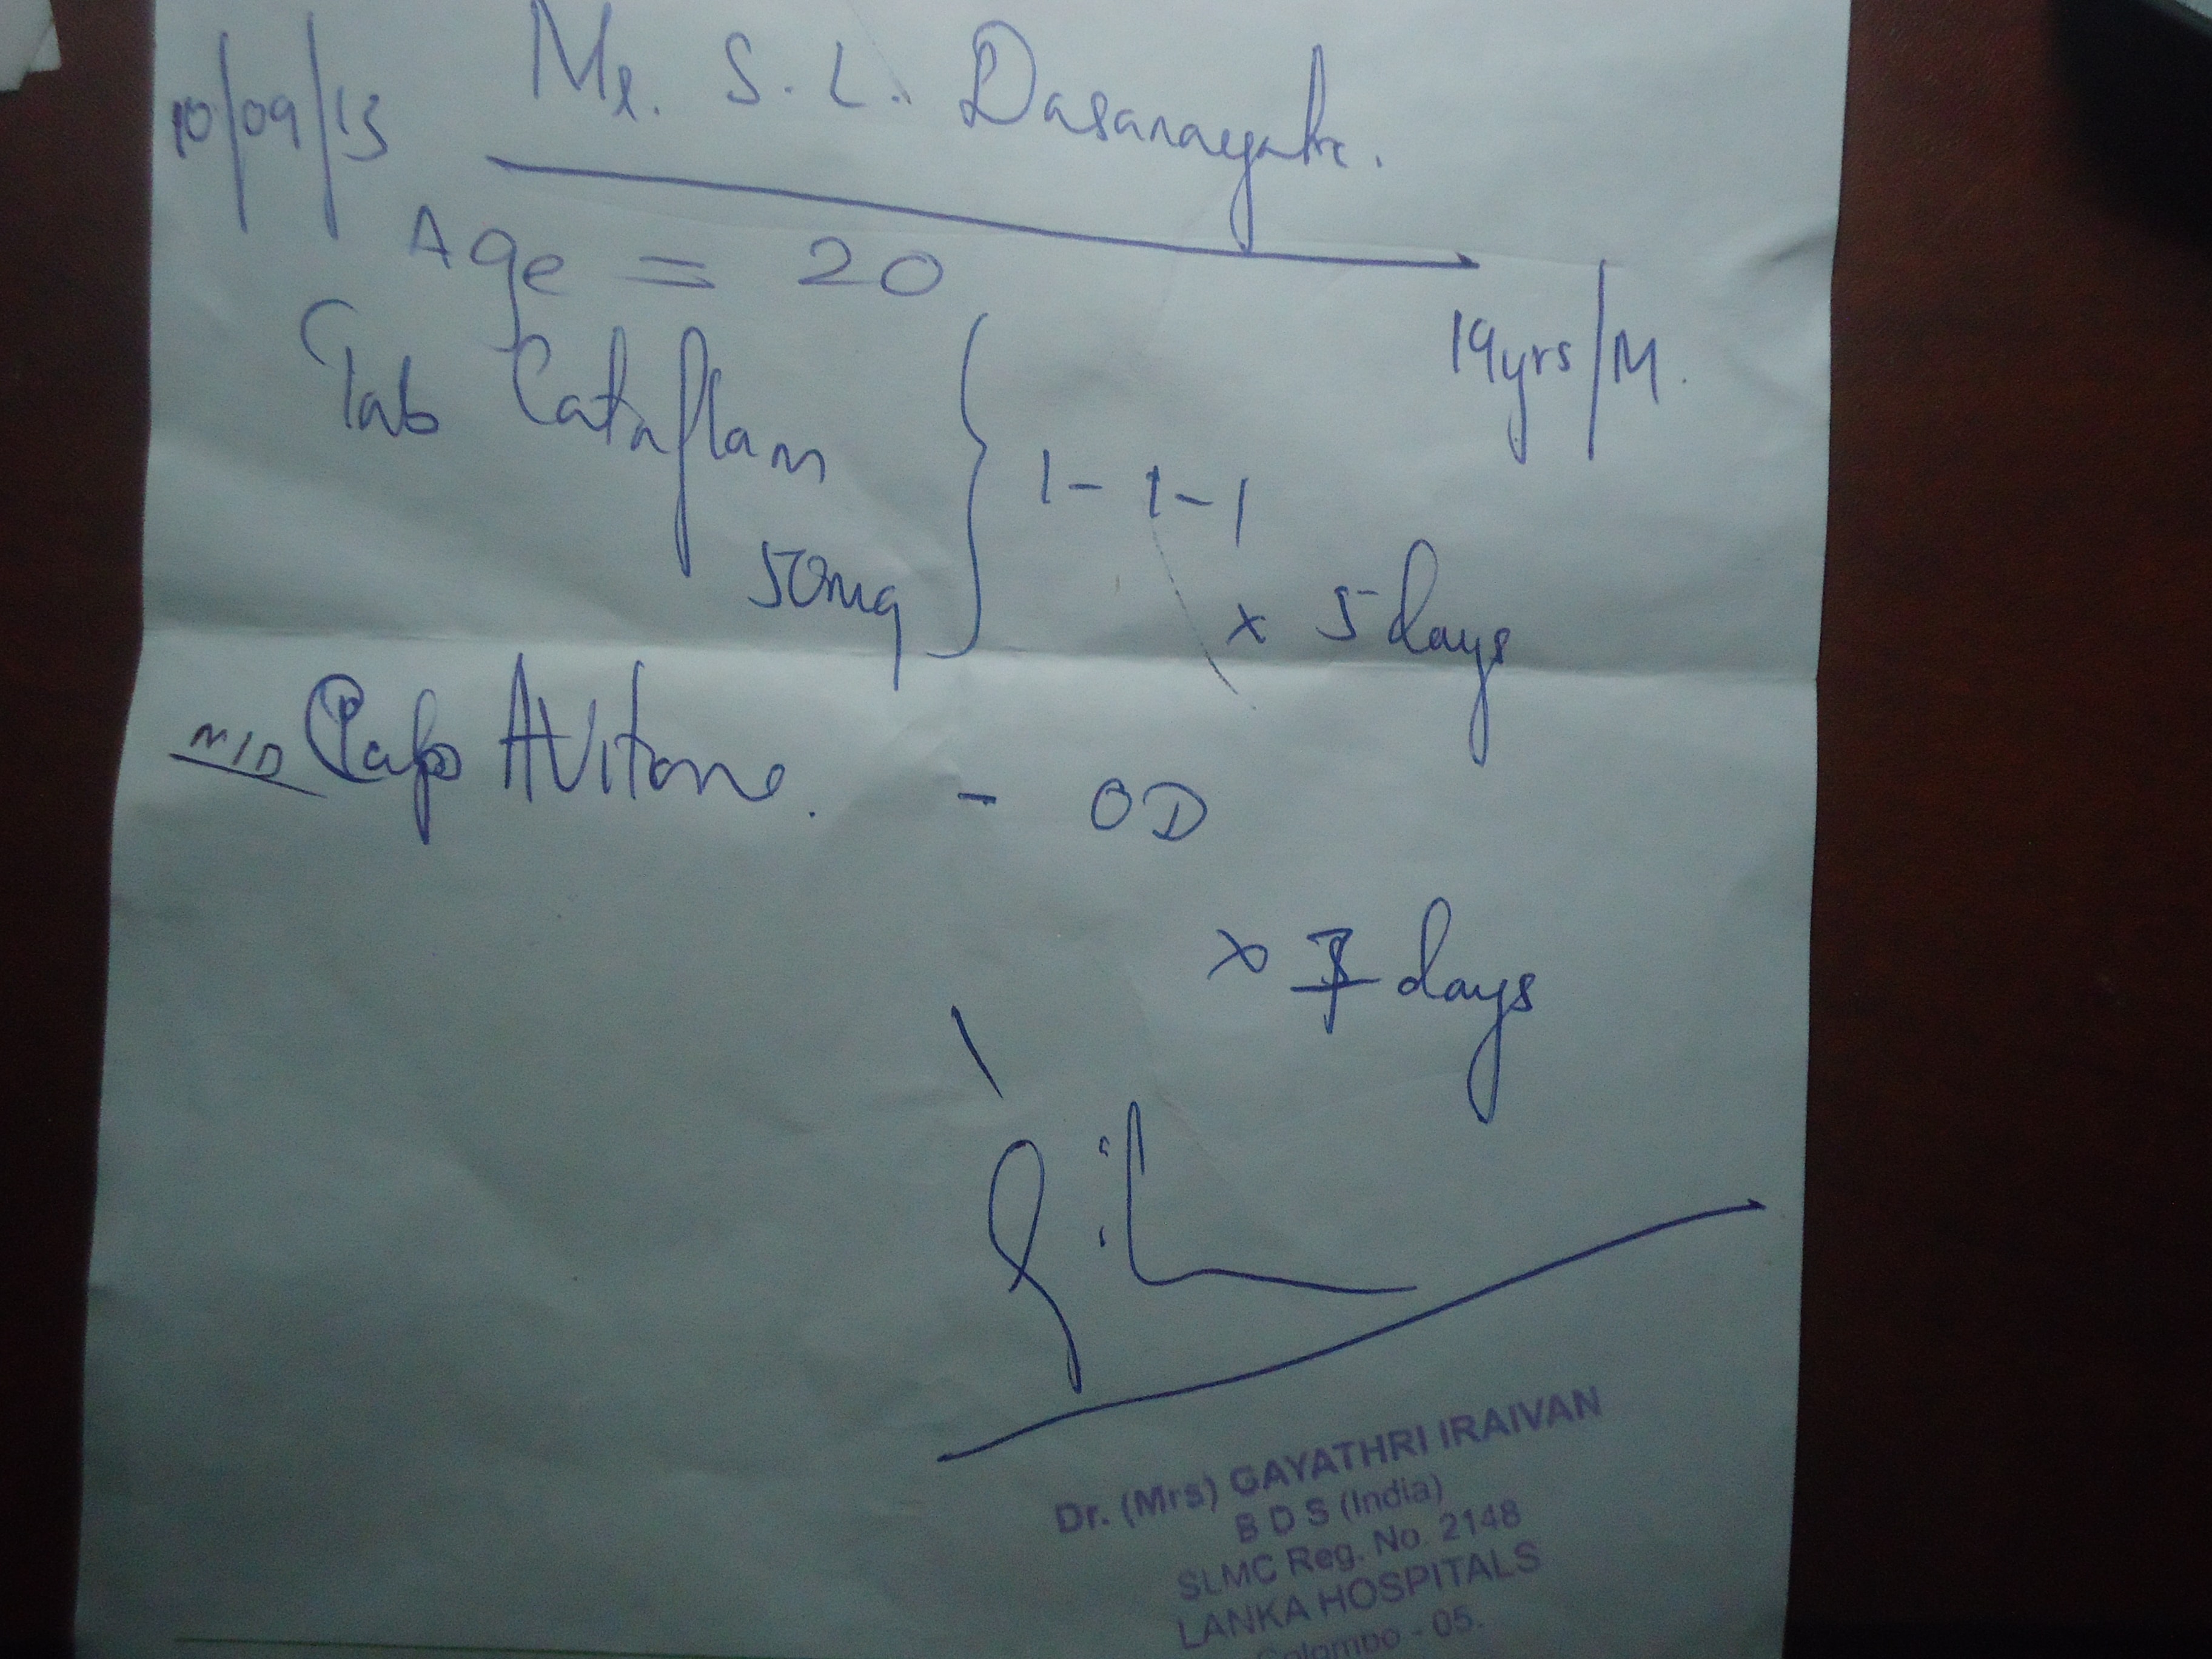 10/09/13 Mr. S. L. Dasanayake.
Age = 20
19yrs/M.
Tab Cataflam
50mg } 1-1-1
x 5 days
N/D Cap Avitone. - OD
x days
Dr. (Mrs) GAYATHRI IRAIVAN
B D S (India)
SLMC Reg. No. 2148
LANKA HOSPITALS
Colombo - 05.